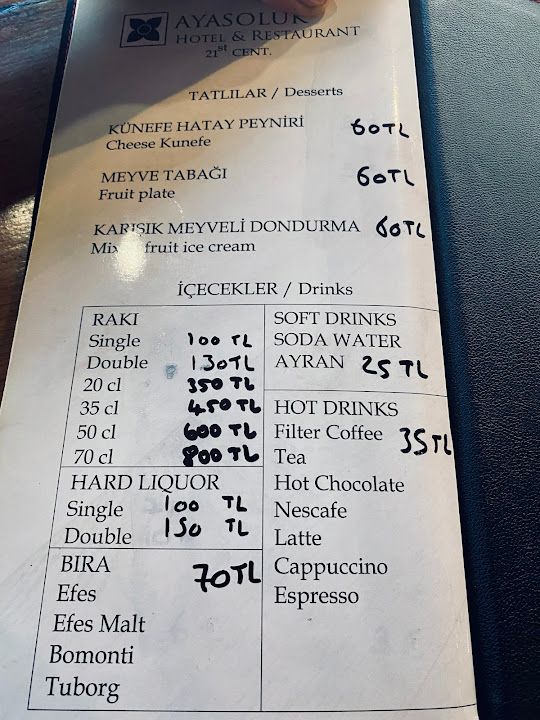 AYASOLUK
HOTEL & RESTAURANT
21st CENT.
TATLILAR / Desserts
KÜNEFE HATAY PEYNİRİ 60TL
Cheese Kunefe
MEYVE TABAĞI 60TL
Fruit plate
KARIŞIK MEYVELİ DONDURMA 60TL
fruit ice cream
İÇECEKLER / Drinks
RAKI
Single 100 TL
Double 130TL
20 cl 350 TL
35 cl 450TL
50 cl 600 TL
70 cl 800TL
HARD LIQUOR
Single 100 TL
Double 150 TL
BIRA 70TL
Efes
Efes Malt
Bomonti
Tuborg
SOFT DRINKS
SODA WATER
AYRAN 25TL
HOT DRINKS
Filter Coffee 35TL
Tea
Hot Chocolate
Nescafe
Latte
Cappuccino
Espresso